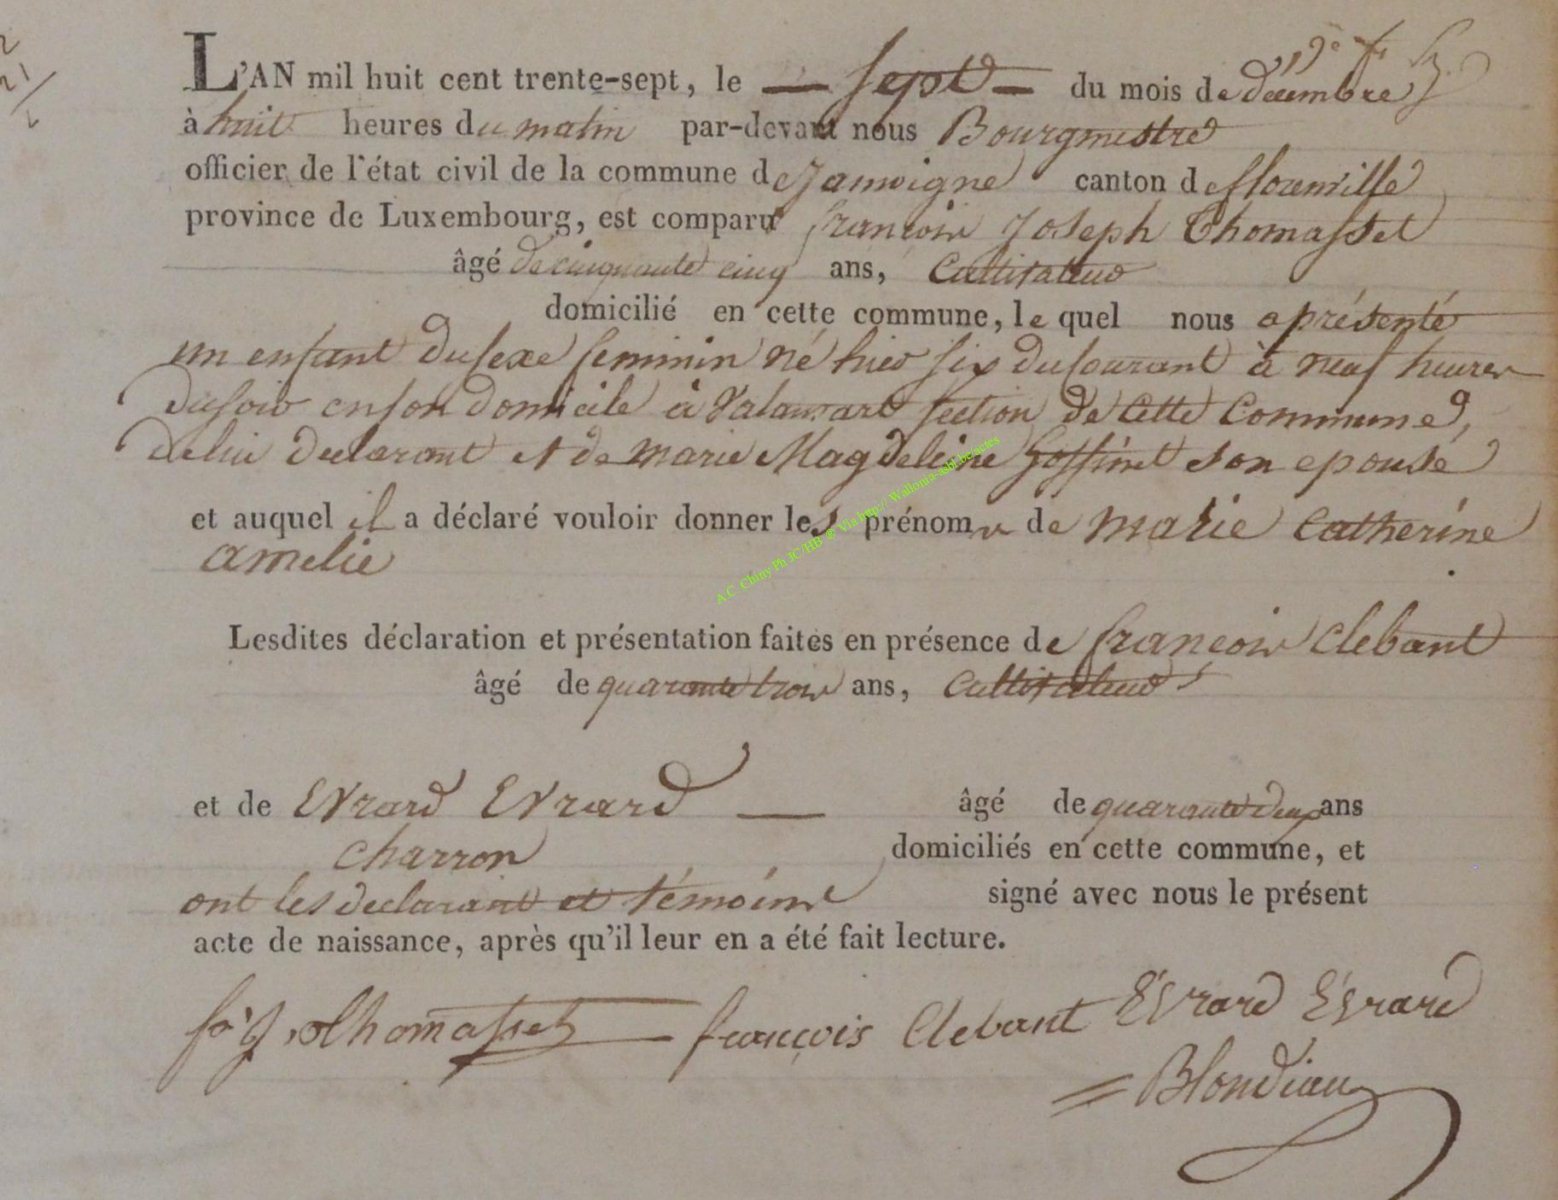 19e f
L'AN mil huit cent trente-sept, le — sept — du mois de decembre
à huit heures du matin par-devant nous Bourgmestre
officier de l'état civil de la commune de Jamoigne canton de florenville
province de Luxembourg, est comparu francois Joseph Thomasset
âgé de cinquante cinq ans, Cultivateur
domicilié en cette commune, le quel nous a présenté
un enfant du sexe feminin né hier six du courant à neuf heures
du soir en son domicile à Valansart section de cette Commune,
de lui declarant et de marie Magdeleine Goffinet son epouse
et auquel il a déclaré vouloir donner les prénoms de marie Catherine
amelie
Lesdites déclaration et présentation faites en présence de francois Clebant
âgé de quarante trois ans, Cultivateur
et de Evrard Evrard — âgé de quarante deux ans
charron domiciliés en cette commune, et
ont les declarant et témoins signé avec nous le présent
acte de naissance, après qu'il leur en a été fait lecture.
Thomasset françois Clebant Evrard Evrard
Blondiau
A.C. Chiny Ph JC/HB @ Via http:// Wallonia-asbl.be/actes